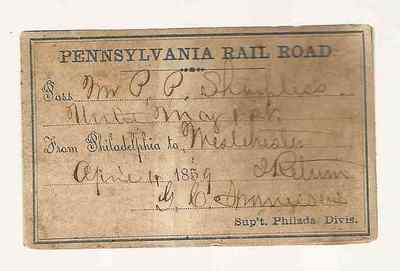 PENNSYLVANIA RAIL ROAD
Pass Mr P. P. Sharples
Until May 1st
From Philadelphia to Westchester
April 4 1859 & Return
G. C.
Sup't. Philada. Divis.